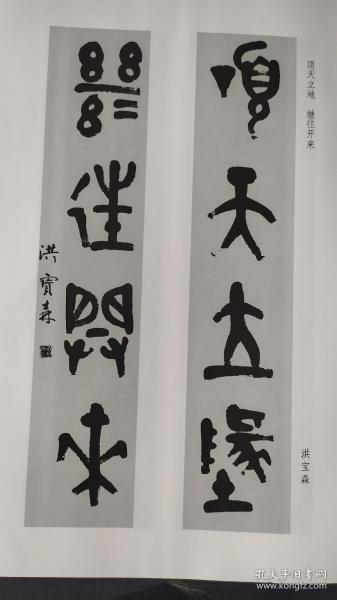 顶天立地 继往开来
洪宝森
頂天立墬
𢇍往開来
洪寶森
孔夫子旧书网